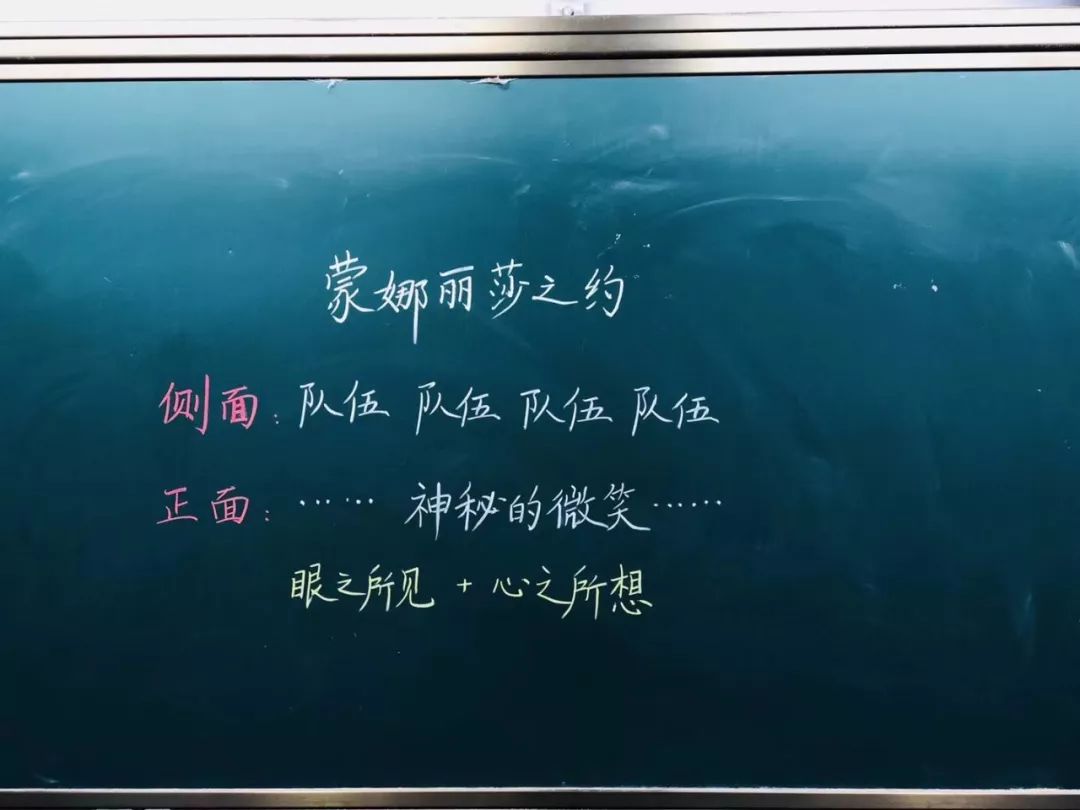 蒙娜丽莎之约
侧面：队伍 队伍 队伍 队伍
正面：…… 神秘的微笑……
眼之所见 + 心之所想